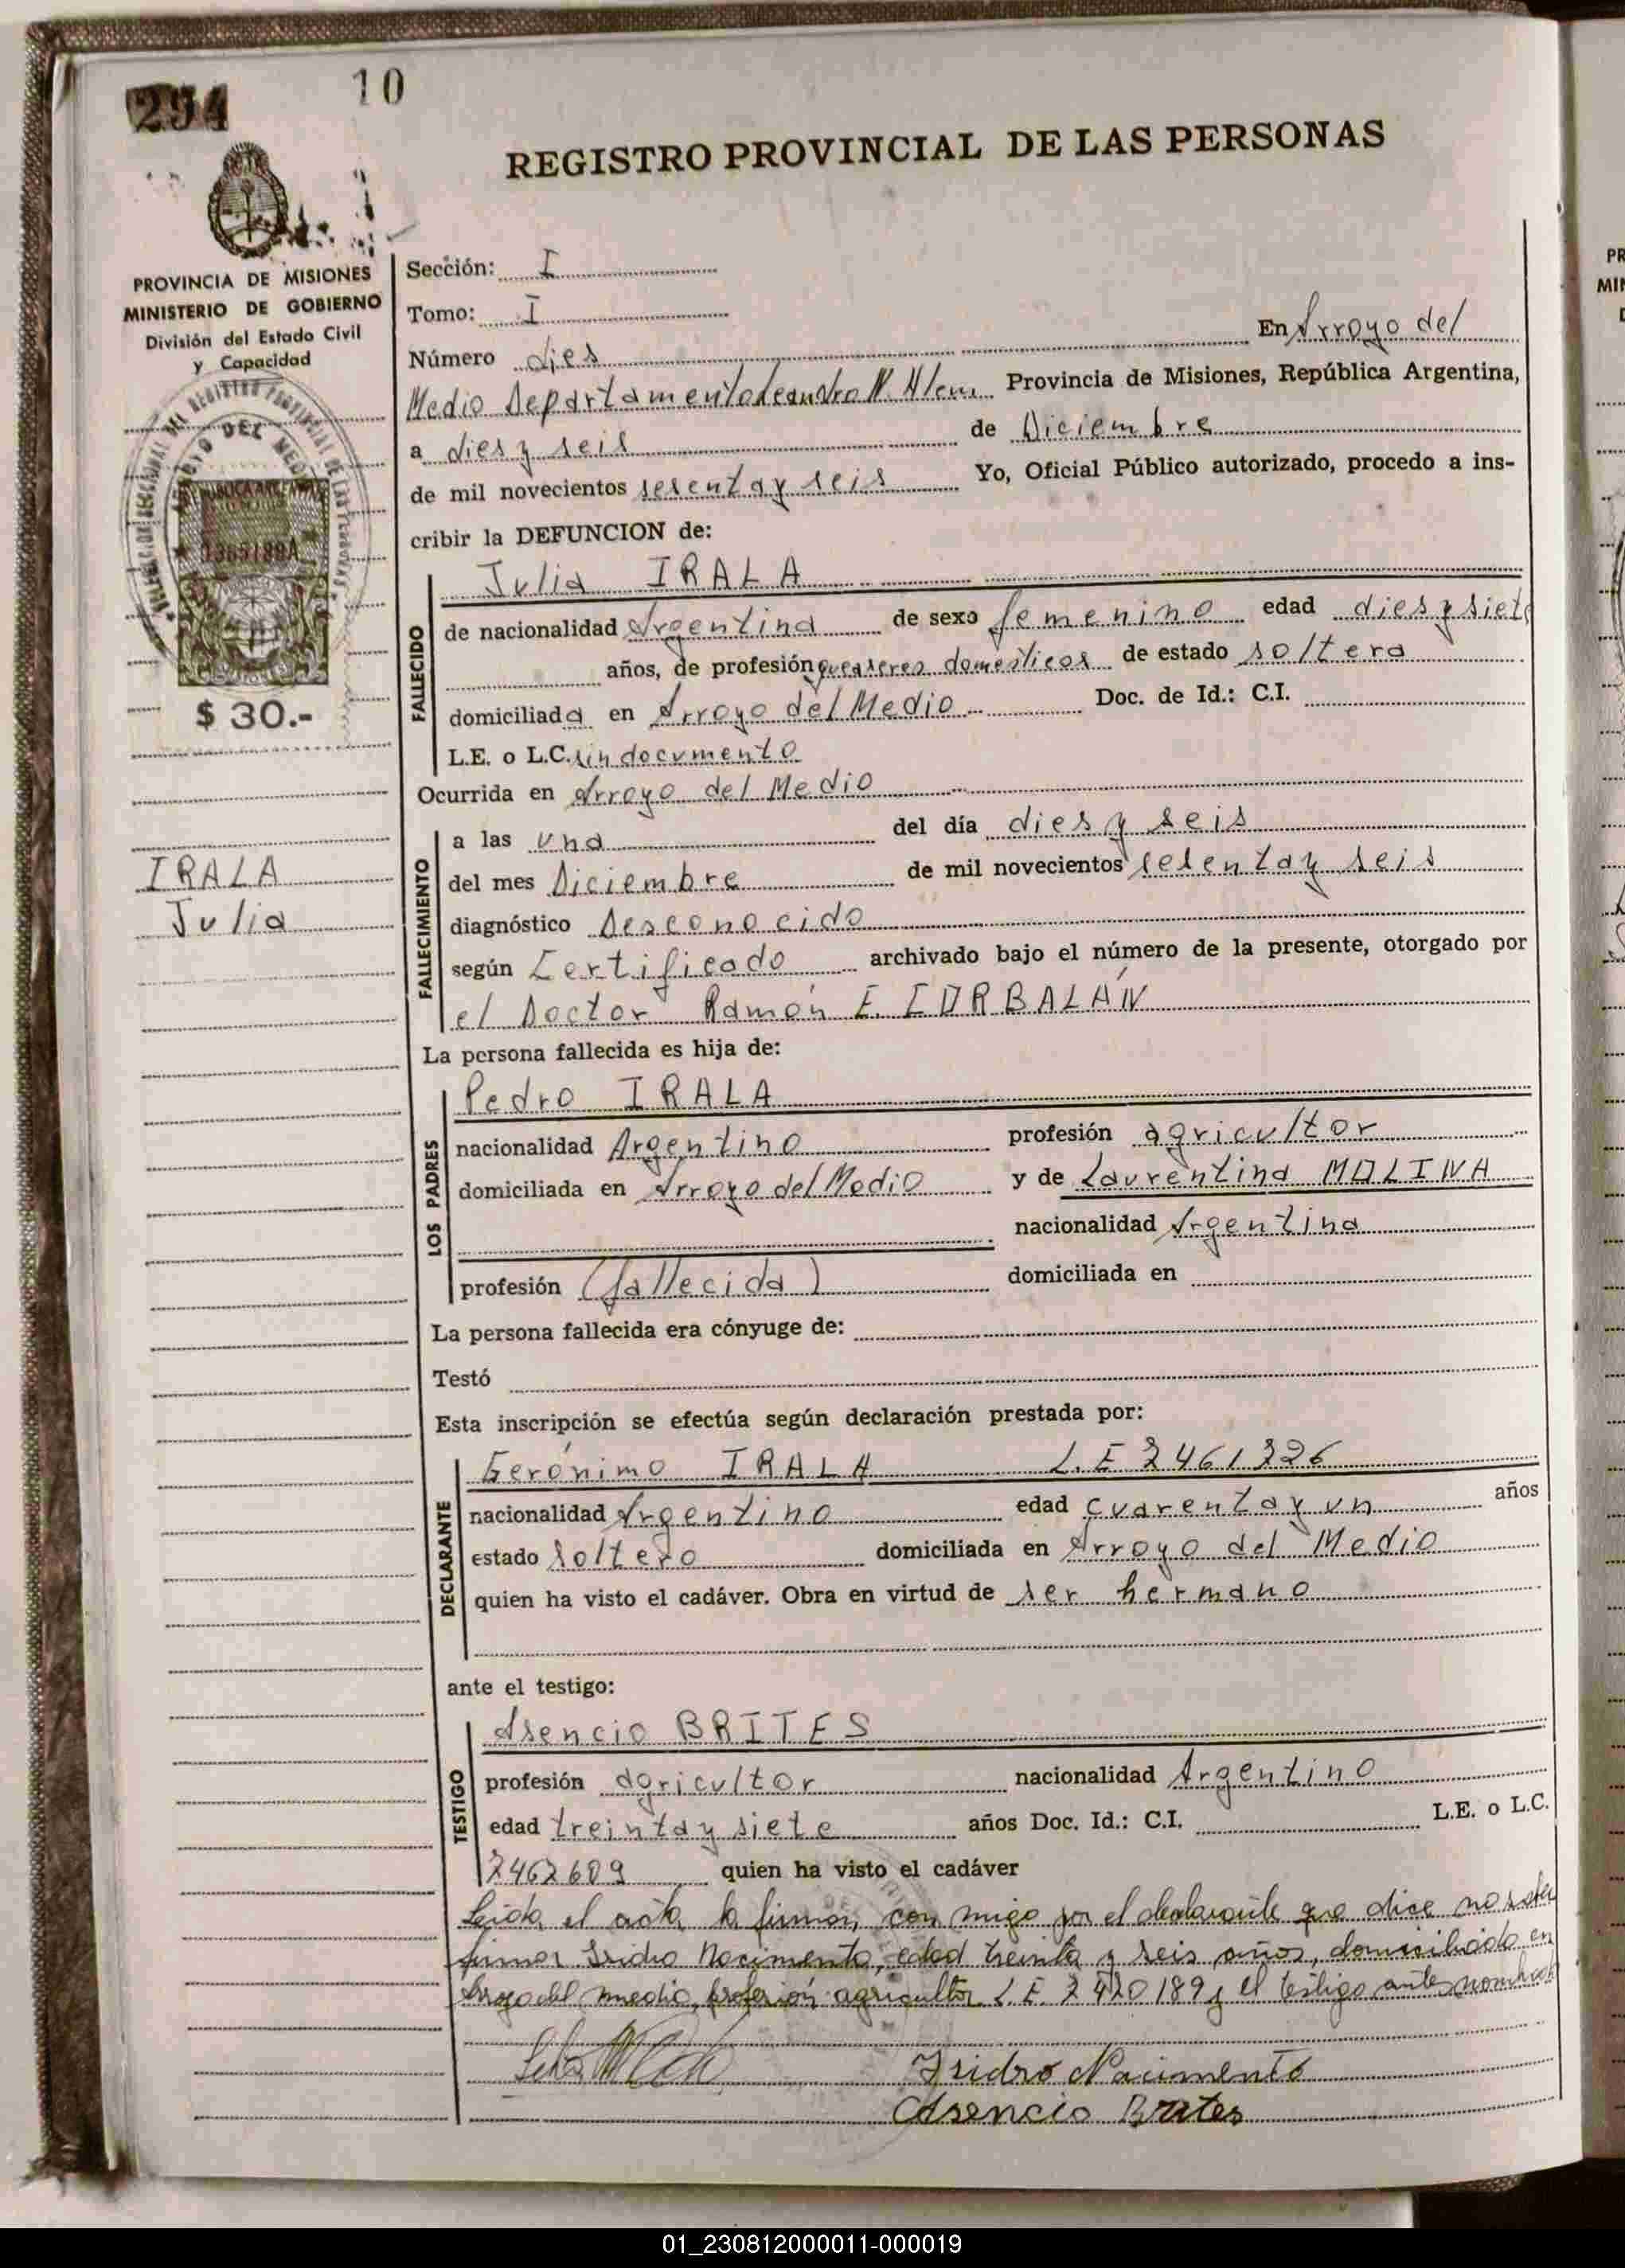 294
10
REGISTRO PROVINCIAL DE LAS PERSONAS
PROVINCIA DE MISIONES
MINISTERIO DE GOBIERNO
División del Estado Civil
y Capacidad
$ 30.-
IRALA
Julia
Sección: I
Tomo: I
Número dies En Arroyo del
Medio Departamento Leandro N. Alem Provincia de Misiones, República Argentina,
a dies y seis de Diciembre
de mil novecientos sesenta y seis Yo, Oficial Público autorizado, procedo a ins-
cribir la DEFUNCION de:
FALLECIDO
Julia IRALA
de nacionalidad Argentina de sexo femenino edad dies y siete
años, de profesión queaseres domesticos de estado soltera
domiciliada en Arroyo del Medio Doc. de Id.: C.I.
L.E. o L.C. sin documento
Ocurrida en Arroyo del Medio
FALLECIMIENTO
a las una del día dies y seis
del mes Diciembre de mil novecientos sesenta y seis
diagnóstico Desconocido
según Certificado archivado bajo el número de la presente, otorgado por
el Doctor Ramón E. CORBALÁN
La persona fallecida es hija de:
LOS PADRES
Pedro IRALA
nacionalidad Argentino profesión agricultor
domiciliada en Arroyo del Medio y de Laurentina MOLINA
nacionalidad Argentina
profesión (fallecida) domiciliada en
La persona fallecida era cónyuge de:
Testó
Esta inscripción se efectúa según declaración prestada por:
DECLARANTE
Gerónimo IRALA L.E 2461326
nacionalidad Argentino edad cuarenta y un años
estado soltero domiciliada en Arroyo del Medio
quien ha visto el cadáver. Obra en virtud de ser hermano
ante el testigo:
TESTIGO
Asencio BRITES
profesión agricultor nacionalidad Argentino
edad treinta y siete años Doc. Id.: C.I. L.E. o L.C.
2462609 quien ha visto el cadáver
Leida el acta la firman con migo por el declarante que dice no saber
firmar Isidro Nacimento, edad treinta y seis años, domiciliado en
Arroyo del medio, profesión agricultor L.E. 2420189 y el testigo antes nombrado
Isidro Nacimento
Asencio Brites
01_230812000011-000019